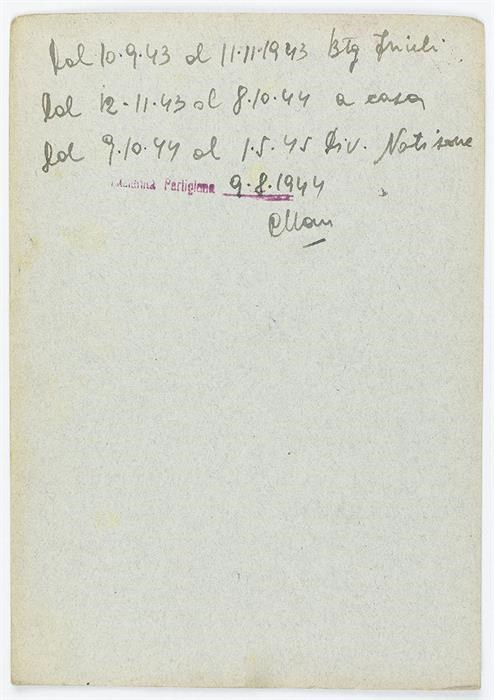 Dal 10.9.43 al 11.11.1943 Btg Friuli
Dal 12-11-43 al 8.10.44 a casa
Dal 9.10.44 al 1.5.45 Div. Natisone
Partigiana 9.8.1944